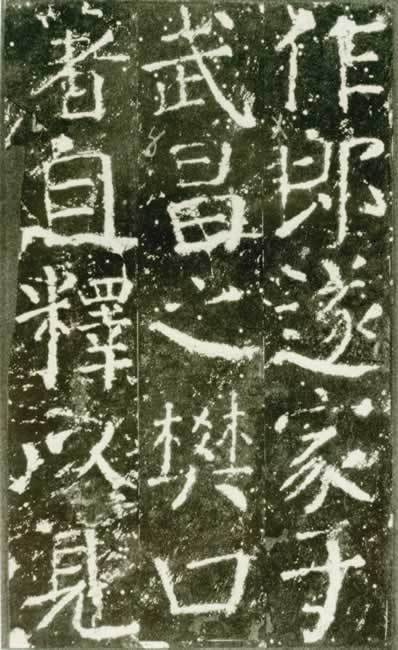 作郎遂家于
武昌之樊口
著自釋以見